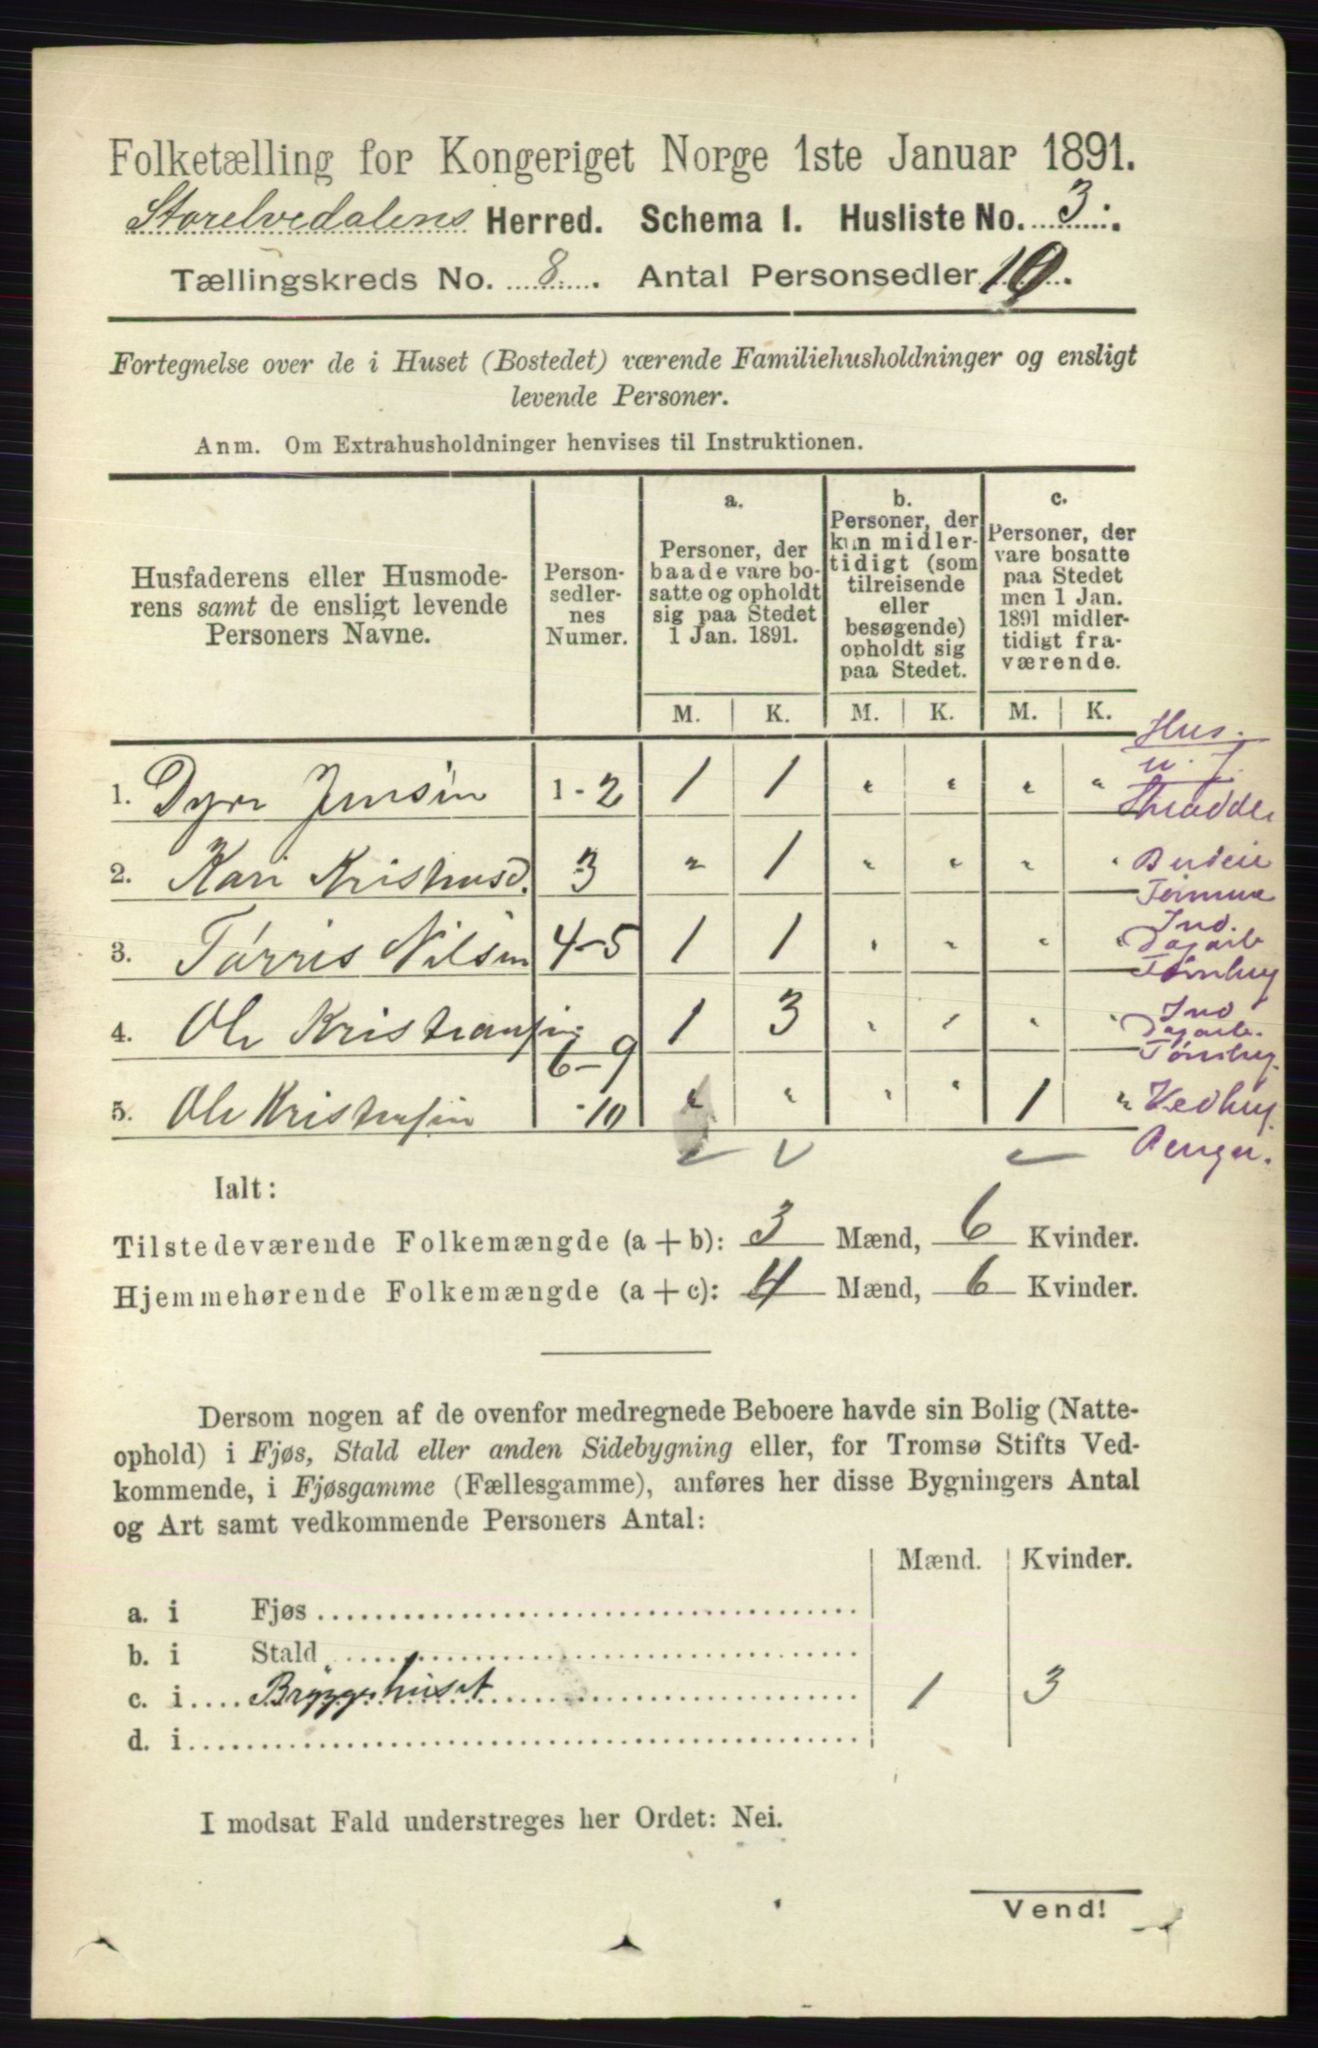 Folketælling for Kongeriget Norge 1ste Januar 1891.
Storelvedalens Herred. Schema I. Husliste No. 3.
Tællingskreds No. 8. Antal Personsedler 10.
Fortegnelse over de i Huset (Bostedet) værende Familiehusholdninger og ensligt
levende Personer.
Anm. Om Extrahusholdninger henvises til Instruktionen.
Husfaderens eller Husmode-
rens samt de ensligt levende
Personers Navne.
Person-
sedler-
nes
Numer.
a.
Personer, der
baade vare bo-
satte og opholdt
sig paa Stedet
1 Jan. 1891.
b.
Personer, der
kun midler-
tidigt (som
tilreisende
eller
besøgende)
opholdt sig
paa Stedet.
c.
Personer, der
vare bosatte
paa Stedet
men 1 Jan.
1891 midler-
tidigt fra-
værende.
M. K. M. K. M. K.
Hus.
1. Dyre Jensen 1-2 1 1 " " " "
2. Kari Kristiansd. 3 " 1 " " " " Budeie
3. Tørris Nilsen 4-5 1 1 " " " " Ind. Dagarb
Tømhug
4. Ole Kristiansen 6-9 1 3 " " " " Ind Dagarb.
Tømhug.
5. Ole Kristiansen 10 " " " " 1 " Vedhug.
Ialt:
Tilstedeværende Folkemængde (a + b): 3 Mænd, 6 Kvinder.
Hjemmehørende Folkemængde (a + c): 4 Mænd, 6 Kvinder.
Dersom nogen af de ovenfor medregnede Beboere havde sin Bolig (Natte-
ophold) i Fjøs, Stald eller anden Sidebygning eller, for Tromsø Stifts Ved-
kommende, i Fjøsgamme (Fællesgamme), anføres her disse Bygningers Antal
og Art samt vedkommende Personers Antal:
Mænd. Kvinder.
a. i Fjøs
b. i Stald
c. i Bryggerhuset 1 3
d. i
I modsat Fald understreges her Ordet: Nei.
Vend!